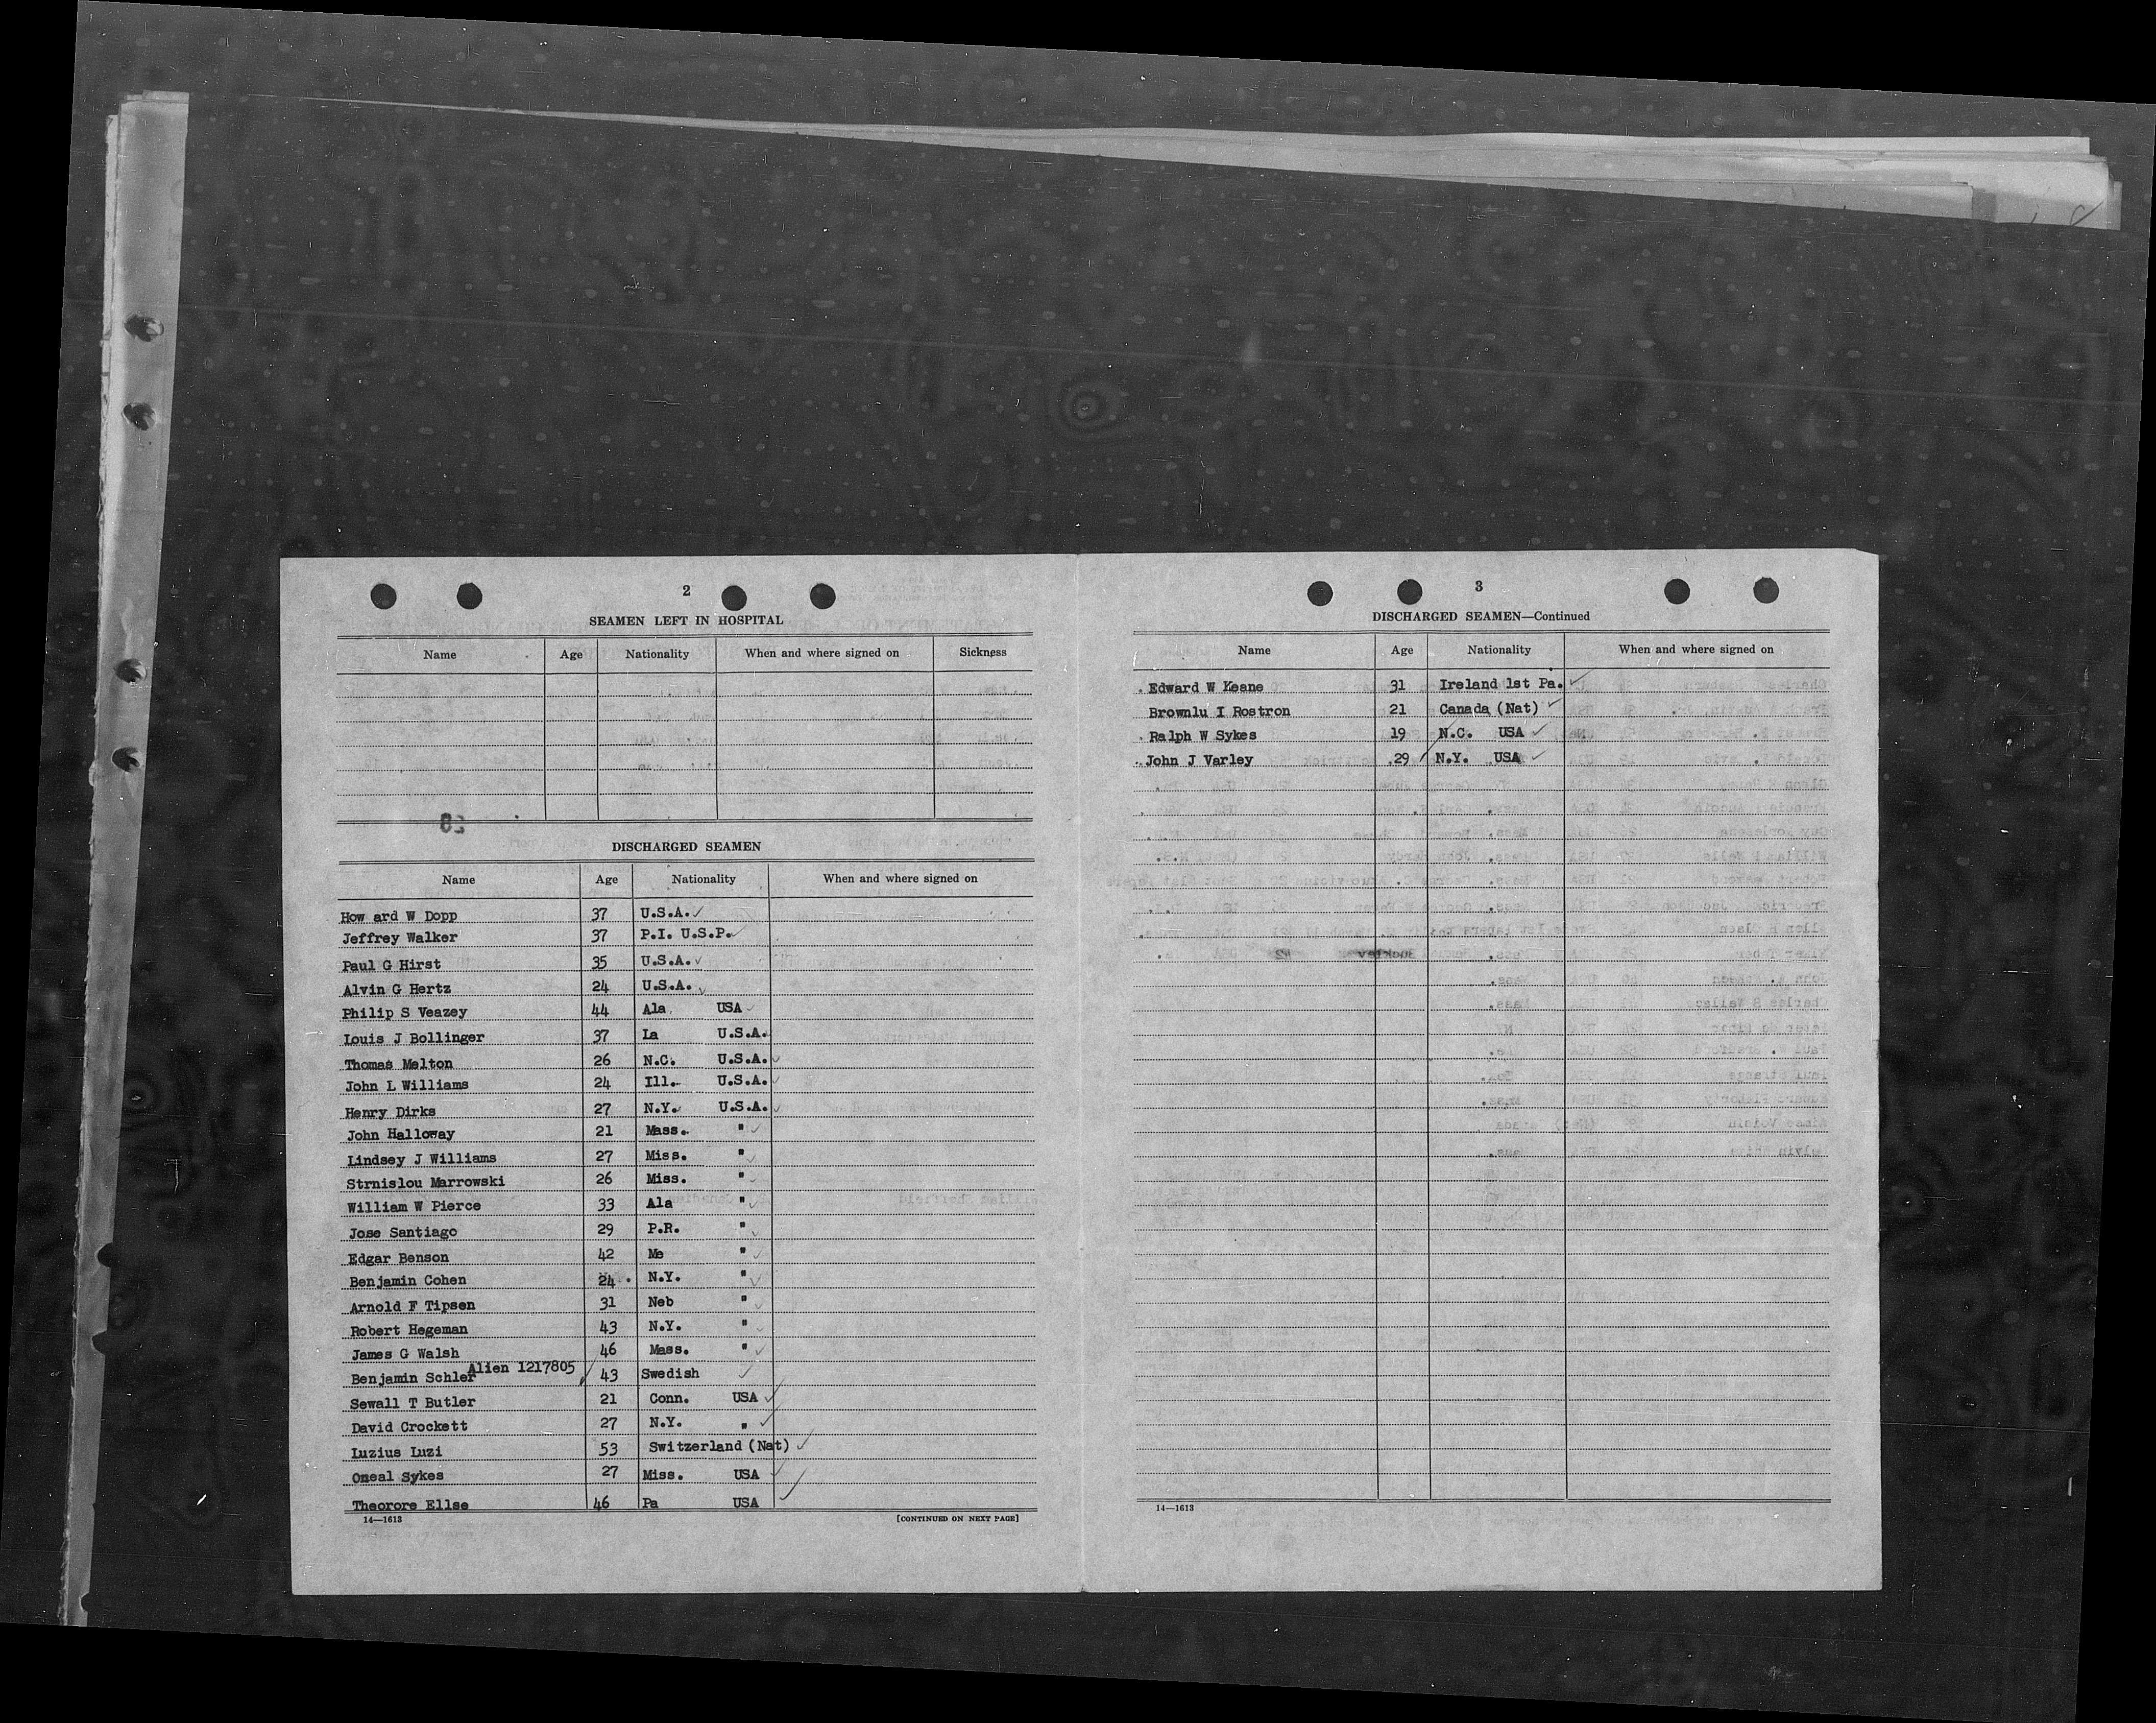 2
SEAMEN LEFT IN HOSPITAL
Name Age Nationality When and where signed on Sickness
DISCHARGED SEAMEN
Name Age Nationality When and where signed on
How ard W Dopp 37 U.S.A.
Jeffrey Walker 37 P.I. U.S.P.
Paul G Hirst 35 U.S.A.
Alvin G Hertz 24 U.S.A.
Philip S Veazey 44 Ala USA
Louis J Bollinger 37 La U.S.A.
Thomas Melton 26 N.C. U.S.A.
John L Williams 24 Ill. U.S.A.
Henry Dirks 27 N.Y. U.S.A.
John Halloway 21 Mass. "
Lindsey J Williams 27 Miss. "
Strnislou Marrowski 26 Miss. "
William W Pierce 33 Ala "
Jose Santiago 29 P.R. "
Edgar Benson 42 Me "
Benjamin Cohen 24 N.Y. "
Arnold F Tipsen 31 Neb "
Robert Hegeman 43 N.Y. "
James G Walsh 46 Mass. "
Benjamin Schler Alien 1217805 43 Swedish
Sewall T Butler 21 Conn. USA
David Crockett 27 N.Y. "
Luzius Luzi 53 Switzerland (Nat)
Oneal Sykes 27 Miss. USA
Theorore Ellse 46 Pa USA
14—1613 [CONTINUED ON NEXT PAGE]
3
DISCHARGED SEAMEN—Continued
Name Age Nationality When and where signed on
Edward W Keane 31 Ireland 1st Pa.
Brownlu I Rostron 21 Canada (Nat)
Ralph W Sykes 19 N.C. USA
John J Varley 29 N.Y. USA
14—1613